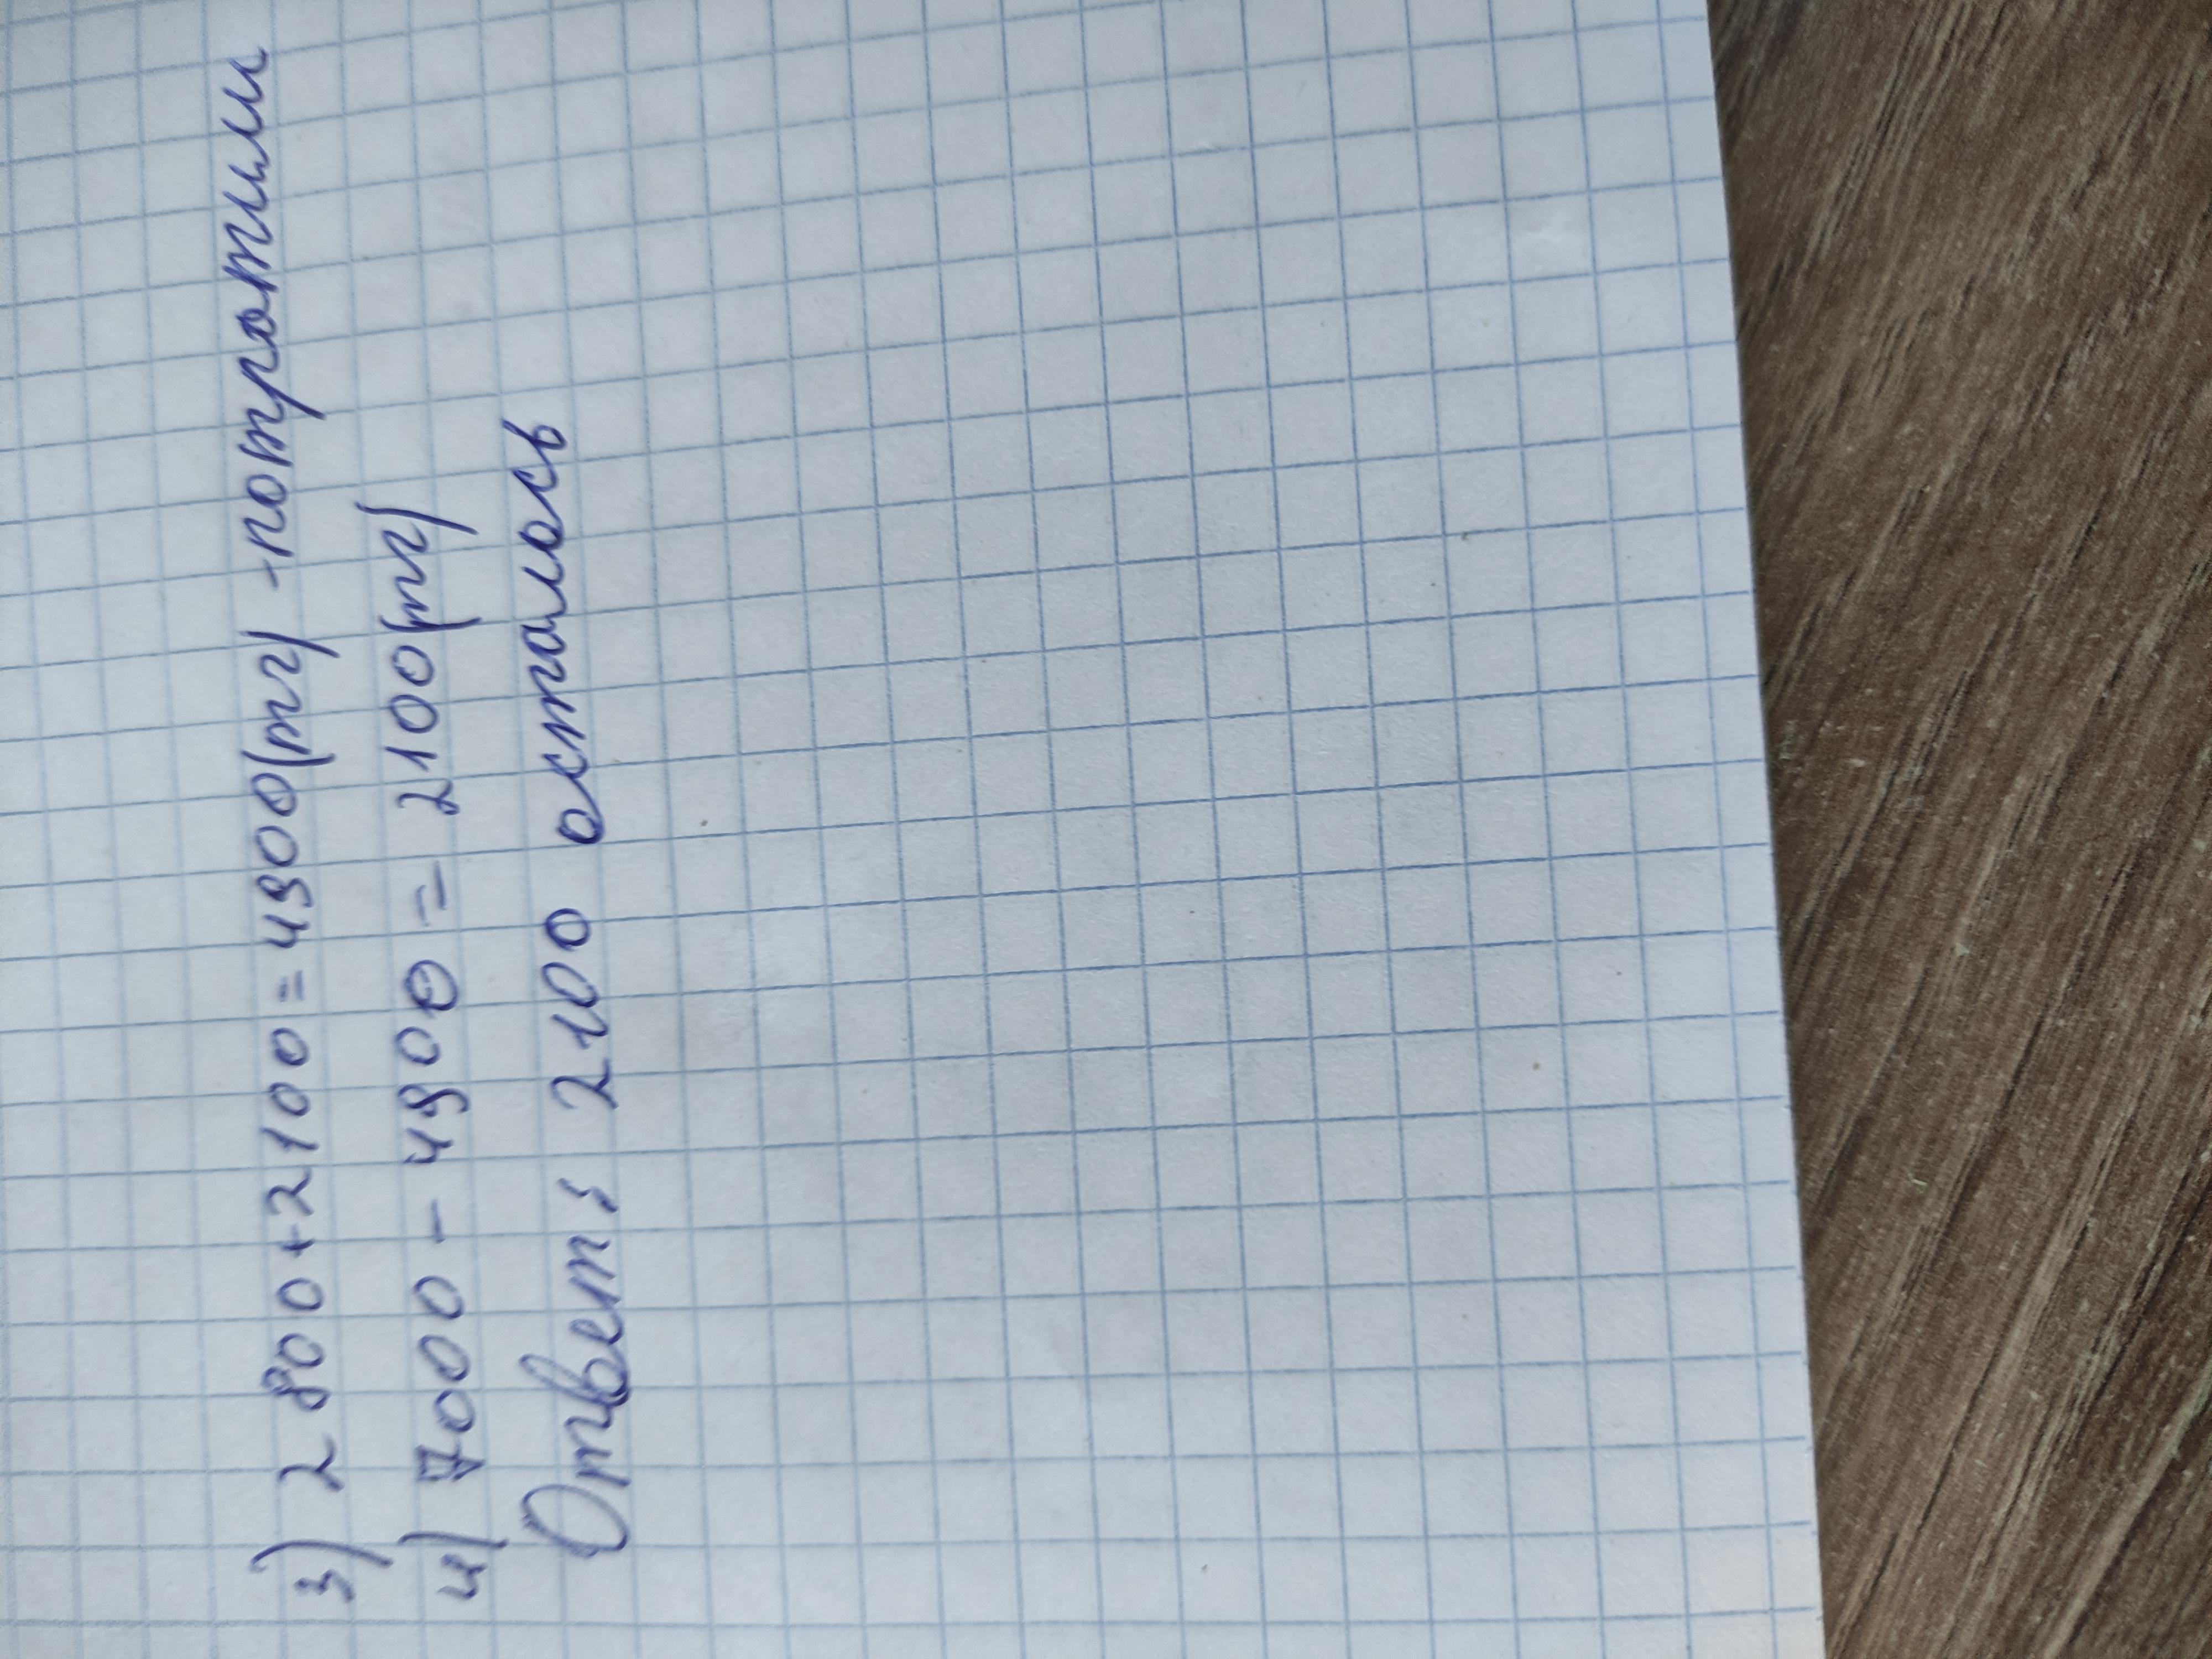 3) 2 800+2100=4900(тг) -потратили
4) 7000 - 4900 = 2100(тг)
Ответ: 2100 осталось